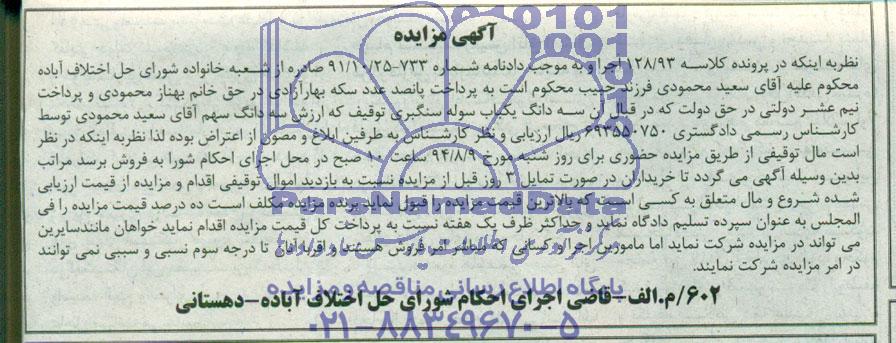 آگهی مزایده
نظربه اینکه در پرونده کلاسه ۱۲۸/۹۳ اجرا و به موجب دادنامه شماره ۷۳۳-۹۱/۱۰/۲۵ صادره از شعبه خانواده شورای حل اختلاف آباده
محکوم علیه آقای سعید محمودی فرزند حبیب محکوم است به پرداخت پانصد عدد سکه بهارآزادی در حق خانم بهناز محمودی و پرداخت
نیم عشر دولتی در حق دولت که در قبال آن سه دانگ یکباب سوله سنگبری توقیف که ارزش سه دانگ سهم آقای سعید محمودی توسط
کارشناس رسمی دادگستری ۶۹۳۵۵۰۷۵۰ ریال ارزیابی و نظر کارشناس به طرفین ابلاغ و مصون از اعتراض بوده لذا نظربه اینکه در نظر
است مال توقیفی از طریق مزایده حضوری برای روز شنبه مورخ ۹۴/۸/۹ ساعت ۱۰ صبح در محل اجرای احکام شورا به فروش برسد مراتب
بدین وسیله آگهی می گردد تا خریداران در صورت تمایل ۳ روز قبل از مزایده نسبت به بازدید اموال توقیفی اقدام و مزایده از قیمت ارزیابی
شده شروع و مال متعلق به کسی است که بالاترین قیمت مزایده را قبول نماید برنده مزایده مکلف است ده درصد قیمت مزایده را فی
المجلس به عنوان سپرده تسلیم دادگاه نماید و حداکثر ظرف یک هفته نسبت به پرداخت کل قیمت مزایده اقدام نماید خواهان مانندسایرین
می تواند در مزایده شرکت نماید اما مامورین اجرا و کسانی که مباشر امر فروش هستند و اقربا آنان تا درجه سوم نسبی و سببی نمی توانند
در امر مزایده شرکت نمایند.
۶۰۲/م.الف-قاضی اجرای احکام شورای حل اختلاف آباده-دهستانی
ParsNamadData
پایگاه اطلاع رسانی مناقصه و مزایده
۰۲۱-۸۸۳۴۹۶۷۰-۵